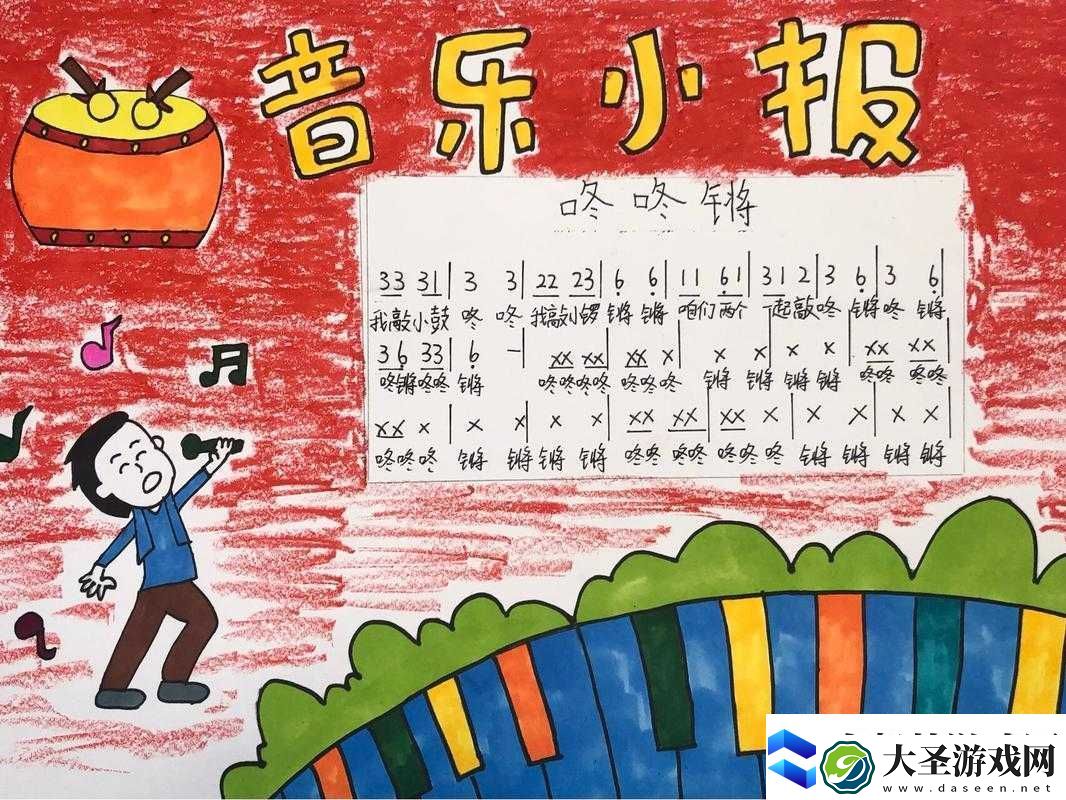 音乐小报
咚咚锵
33 31 | 3 3 | 22 23 | 6 6 | 11 61 | 31 2 | 3 6 | 3 6 |
我敲小鼓 咚 咚 我敲小锣 锵 锵 咱们两个 一起敲咚 锵咚 锵
36 33 | 6 — | xx xx | xx x | x x | x x | xx xx |
咚锵咚咚 锵 咚咚咚咚 咚咚咚 锵 锵 锵 锵 咚咚 咚咚
xx x | x x | x x | xx xx | xx x | x x | x x |
咚咚咚 锵 锵 锵 锵 咚咚 咚咚 咚咚 咚 锵 锵 锵 锵
大圣游戏网
www.daseen.net